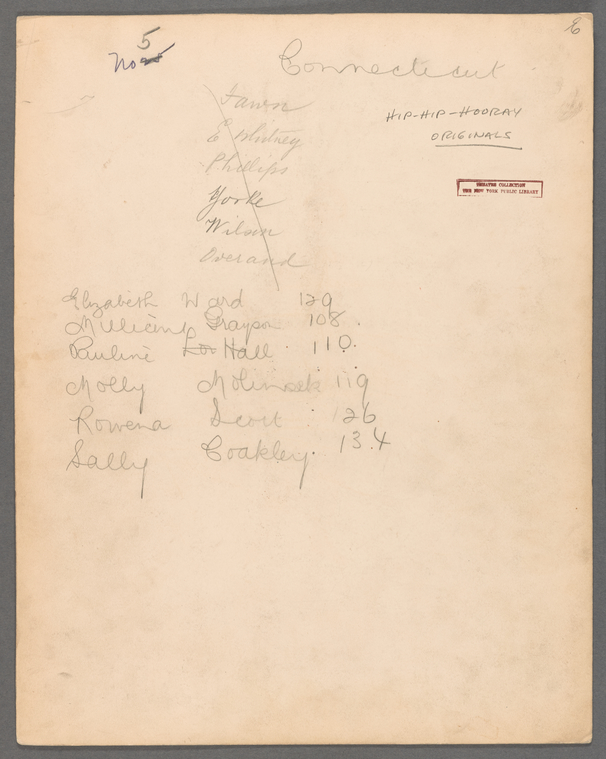 E
5
No
Connecticut
Fawn
E Whitney
Phillips
Yorke
Wilson
Overand
HIP-HIP-HOORAY
ORIGINALS
THEATRE COLLECTION
THE NEW YORK PUBLIC LIBRARY
Elizabeth Ward 129
Millicent Grayson 108.
Pauline Hall 110.
Molly 119
Rowena Scott 126
Sally Coakley. 134